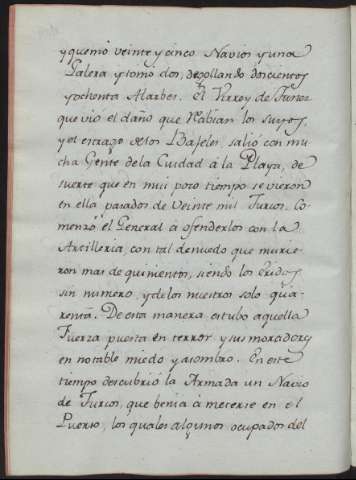 y quemó veinte y cinco Navios y una
Galera y tomo dos, degollando doscientos
y ochenta Alarbes. El Virrey de Tunez
que vió el daño que habian los suyos,
y el estrago de los Bajeles salió con mu
cha Gente de la Cuidad á la Playa, de
suerte que en mui poco tiempo se vieron
en ella pasados de veinte mil Turcos. Co-
menzó el General a ofenderlos con la
Artilleria, con tal denuedo que murie
ron mas de quinientos, siendo los eridos
sin numero, y de los nuestros solo qua
renta. De esta manera estubo aquella
Fuerza puesta en terror, y sus moradores
en notable miedo y asombro. En este
tiempo descubrió la Armada un Navio
de Turcos, que benia á meterse en el
Puerto, los quales algunos ocupados del